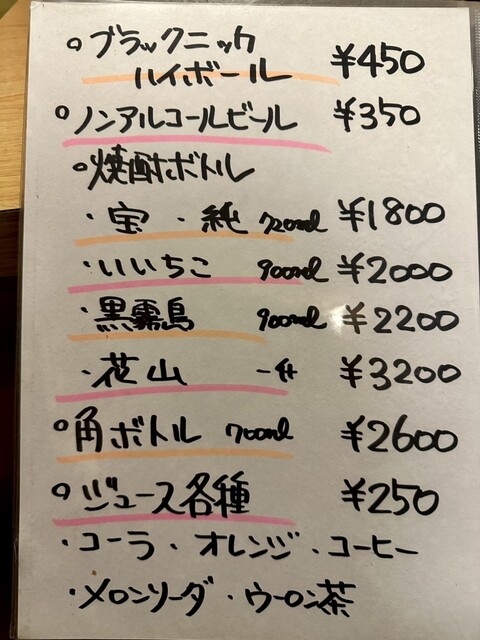 ○ブラックニック
ハイボール ¥450
○ノンアルコールビール ¥350
○焼酎ボトル
・宝・純 720ml ¥1800
・いいちこ 900ml ¥2000
・黒霧島 900ml ¥2200
・花山 一升 ¥3200
○角ボトル 700ml ¥2600
○ジュース各種 ¥250
・コーラ・オレンジ・コーヒー
・メロンソーダ・ウーロン茶